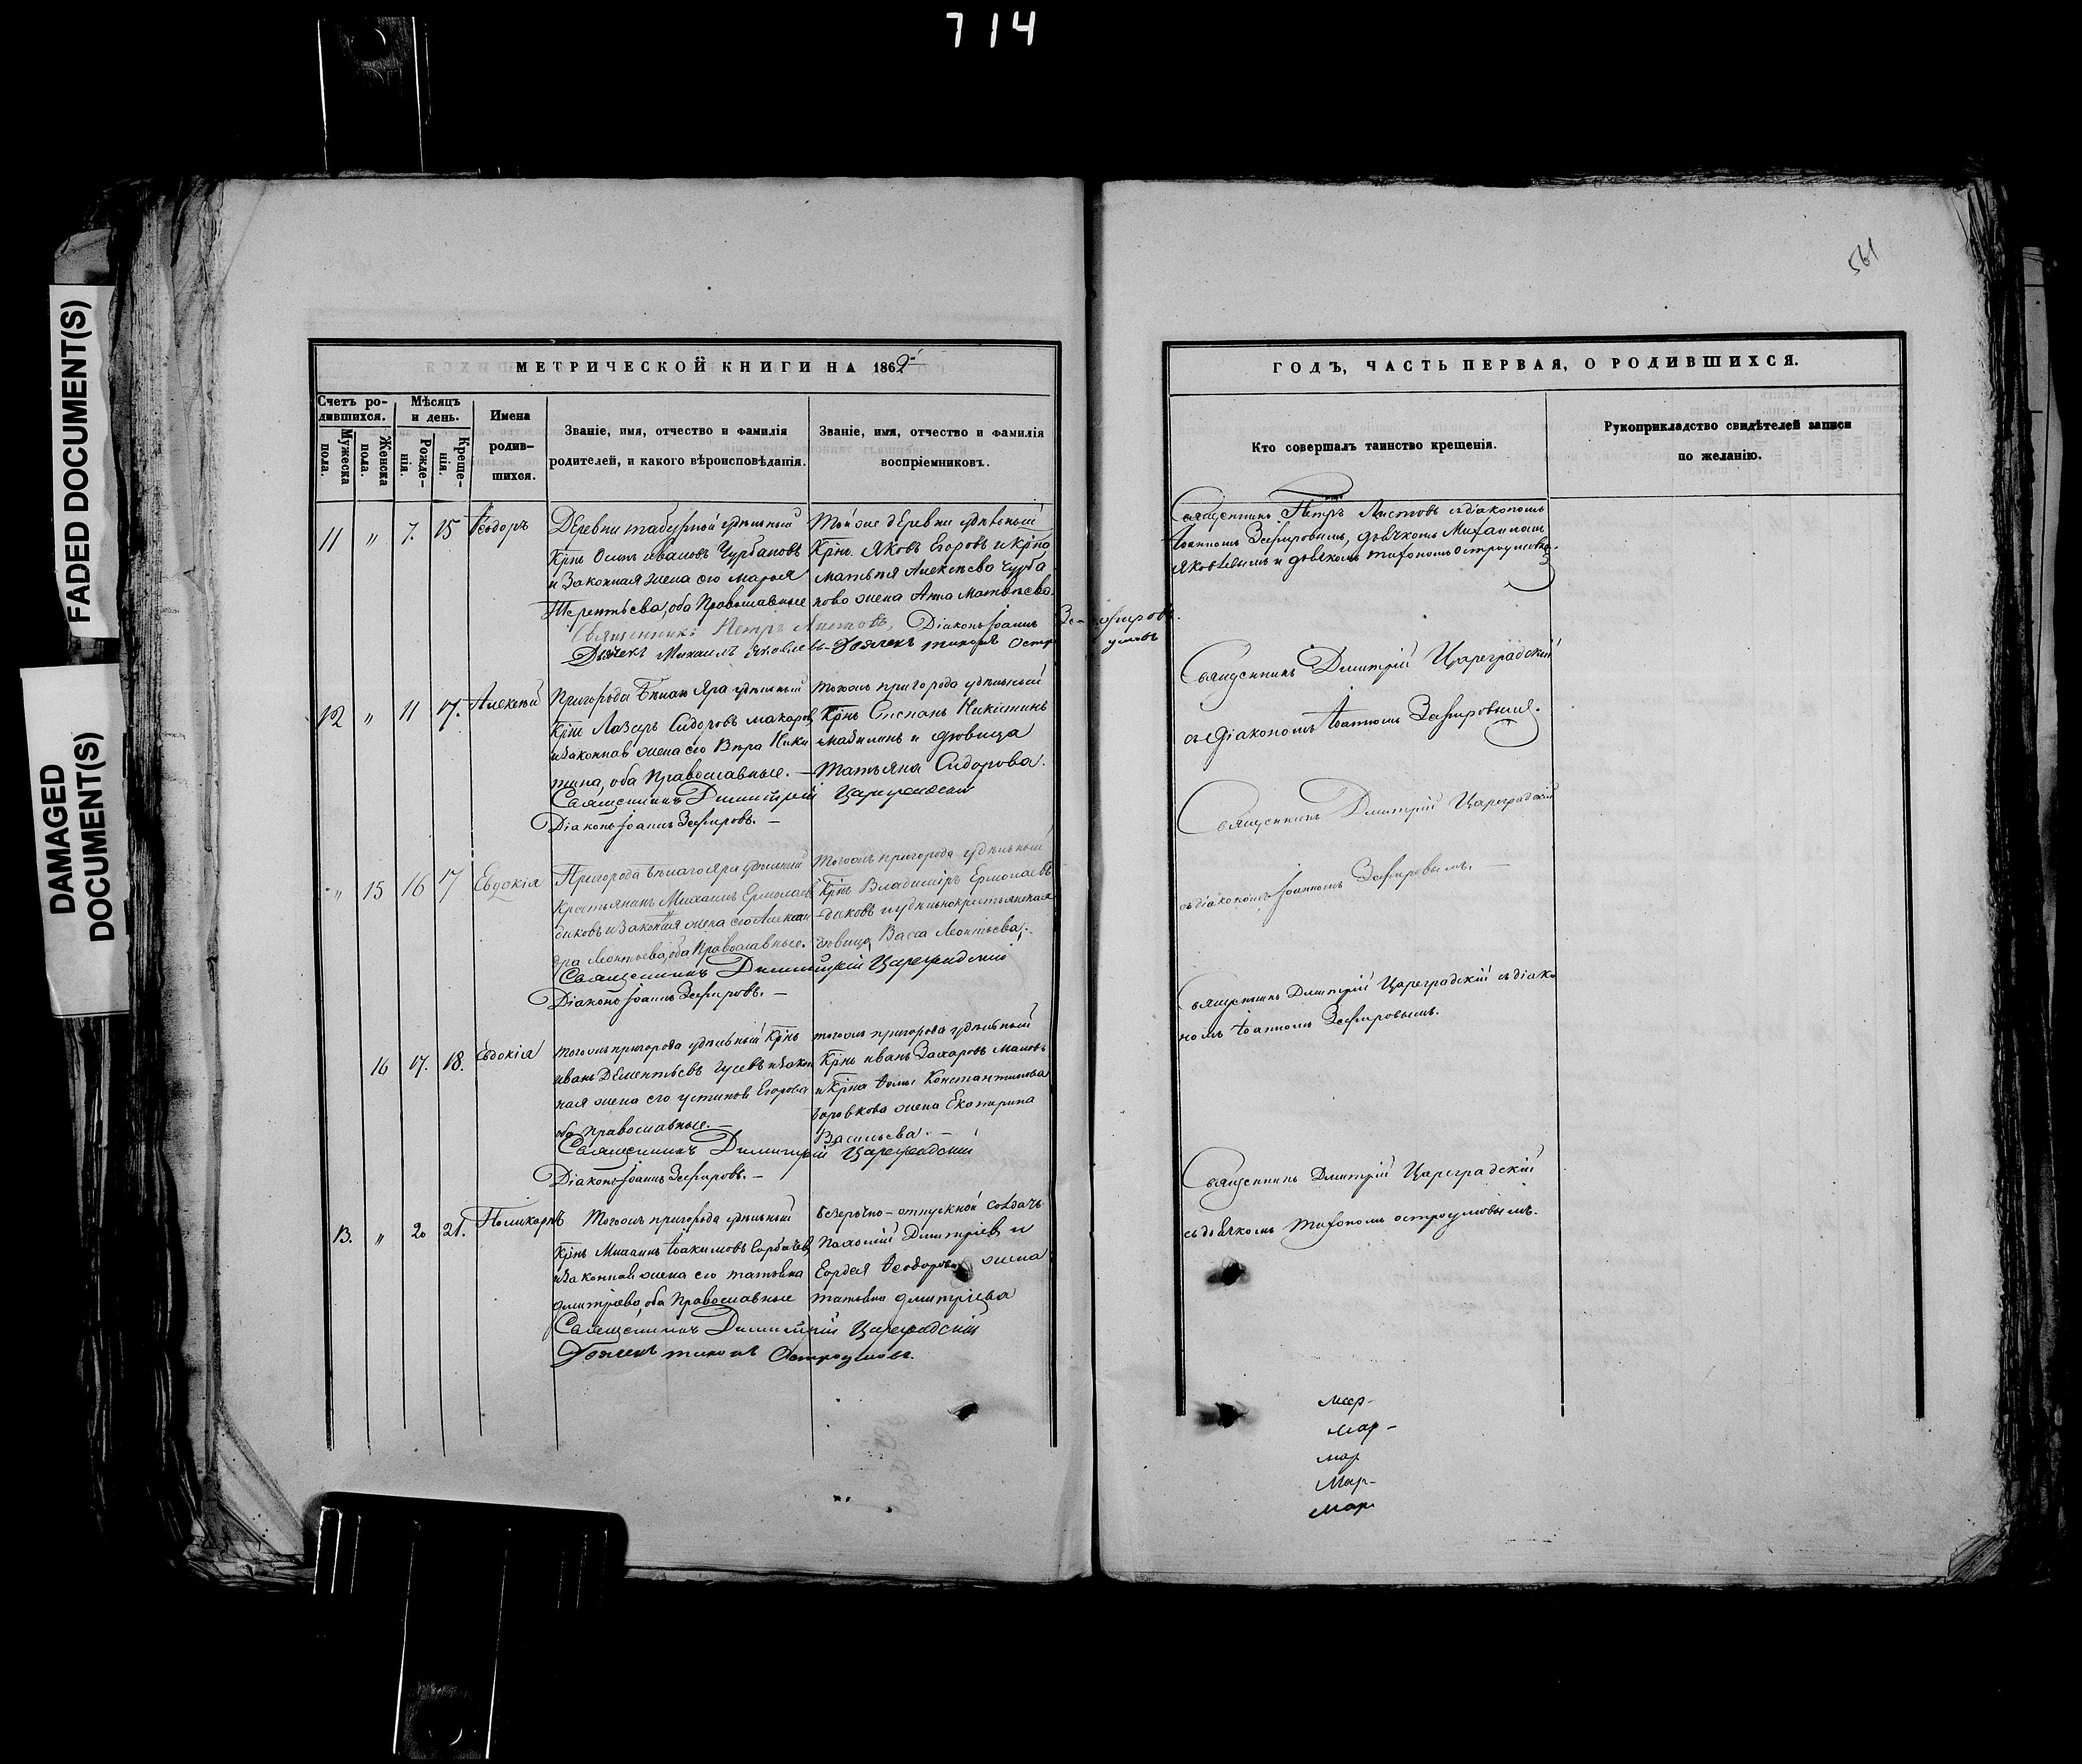 714
FADED DOCUMENT(S)
DAMAGED
DOCUMENT(S)
561
МЕТРИЧЕСКОЙ КНИГИ НА 1862
Счетъ ро-
дившихся.
Мужеска
пола.
Женска
пола.
Мѣсяцъ
и день.
Рожде-
нія.
Креще-
нія.
Имена
родив-
шихся.
Званіе, имя, отчество и фамилія
родителей, и какого вѣроисповѣданія.
Званіе, имя, отчество и фамилія
воспріемниковъ.
11 " 7. 15 Ѳеодоръ
Деревни удѣльный
Крнъ Осипъ Ивановъ Чурбановъ
и Законная жена его Марья
Терентьева, оба Православные
Тойже деревни удѣльный
Крнъ Яковъ Егоровъ и Крна
Матвѣя Алексѣева Чурба
нова жена Анна Матвѣева.
Священникъ Петръ Листовъ, Діаконъ Іоаннъ Зефировъ.
Дьячекъ Михаилъ Яковлевъ Дьячекъ Тихонъ Остроумовъ
12 " 11 17. Алексѣй
Пригорода Бѣлаго Яра удѣльный
Крнъ Лазарь Сидоровъ Макаровъ
и Законная жена его Вѣра Ники
тина, оба Православные. —
Тогожъ пригорода удѣльный
Крнъ Степанъ Никитинъ
и дѣвица
Татьяна Сидорова.
Священникъ Димитрій Цареградскій
Діаконъ Іоаннъ Зефировъ. —
" 15 16 17 Евдокія
Пригорода Бѣлаго Яра удѣльный
Крестьянинъ Михаилъ Ермолаевъ
диковъ и Законная жена его Алексан
дра Леонтьева, оба Православные.
Тогожъ пригорода удѣльный
Крнъ Владиміръ Ермолаевъ
диковъ и удѣльнокрестьянская
дѣвица Васса Леонтьева.
Священникъ Димитрій Цареградскій
Діаконъ Іоаннъ Зефировъ. —
16 17. 18. Евдокія
Тогожъ пригорода удѣльный Крнъ
Иванъ Дементьевъ Гусевъ и Закон
ная жена его Устинья Егорова
оба Православные. —
Тогожъ пригорода удѣльный
Крнъ Иванъ Захаровъ
и Крна Ѳомы Константинова
жена Екатерина
Васильева. —
Священникъ Димитрій Цареградскій
Діаконъ Іоаннъ Зефировъ. —
13. " 20 21. Поликарпъ
Тогожъ пригорода удѣльный
Крнъ Михаилъ Іоакимовъ Горбачевъ
и Законная жена его Татьяна
Дмитріева, оба Православные
Безсрочно-отпускной солдатъ
Пахомій Дмитріевъ и
Гордея Ѳеодорова жена
Татьяна Дмитріева
Священникъ Димитрій Цареградскій
Дьячекъ Тихонъ Остроумовъ.
ГОДЪ, ЧАСТЬ ПЕРВАЯ, О РОДИВШИХСЯ.
Кто совершалъ таинство крещенія.
Рукоприкладство свидѣтелей записи
по желанію.
Священникъ Петръ Листовъ съ діакономъ
Іоанномъ Зефировымъ, дьячкомъ Михаиломъ
Яковлевымъ и дьячкомъ Тихономъ Остроумовым.
Священникъ Дмитрій Цареградскій
съ діакономъ Іоанномъ Зефировымъ.
Священникъ Дмитрій Цареградскій
съ діакономъ Іоанномъ Зефировымъ. —
Священникъ Дмитрій Цареградскій съ діако
номъ Іоанномъ Зефировымъ.
Священникъ Дмитрій Цареградскій
съ дьячкомъ Тихономъ Остроумовымъ.
Мар-
Мар-
Мар
Мар-
Мар